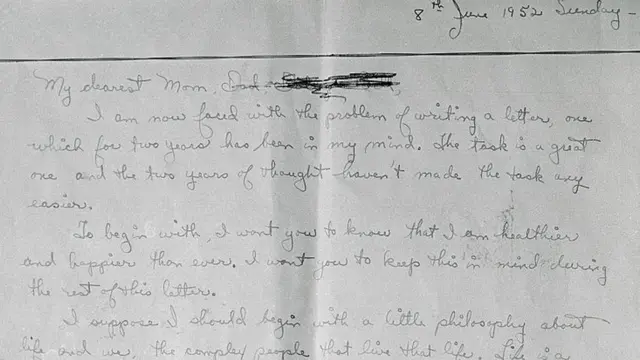 8th June 1952 Sunday -
My dearest Mom, Dad
I am now faced with the problem of writing a letter, one
which for two years has been in my mind. The task is a great
one and the two years of thought haven't made the task any
easier.
To begin with, I want you to know that I am healthier
and happier than ever. I want you to keep this in mind during
the rest of this letter.
I suppose I should begin with a little philosophy about
life and we, the complex people that live that life. Life is a